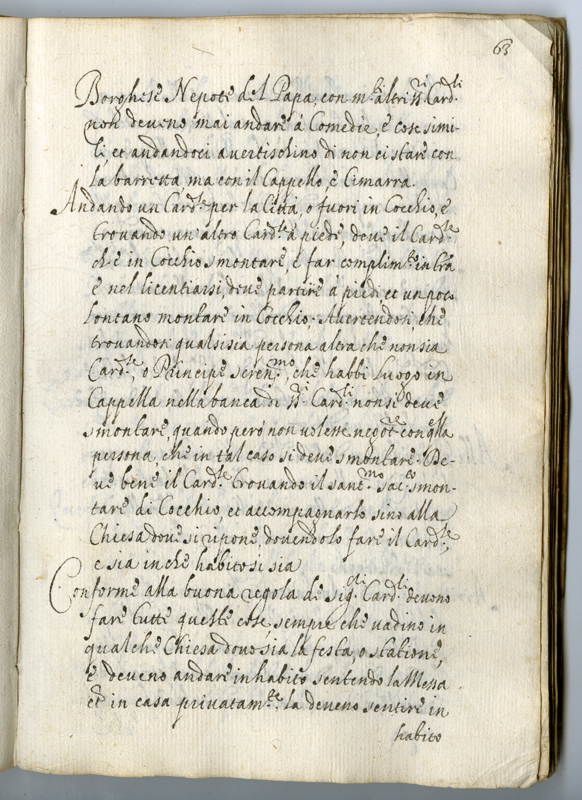 63
Borghese Nepote del Papa, con m.ti altri SS.ri Card.li
non deveno mai andare à Comedie, e cose simi-
li, et andandoci avertischino di non ci stare con
la barretta, ma con il Cappello, e Cimarra.
Andando un Card.le per la Città, o fuori in Cocchio, e
trovando un'altro Card.le à piedi, deve il Card.le
ch'è in Cocchio smontare, e far complim.to in trà
e nel licentiarsi, deve partire à piedi et un poco
lontano montare in Cocchio. Avertendosi, che
trovandosi qualsisia persona altra che non sia
Card.le, o Principe seren.mo, che habbi luogo in
Cappella nella banca di SS.ri Card.li non si deve
smontare, quando però non volesse negot.re con q.lla
persona, che in tal caso si deve smontare. De-
ve bene il Card.le trovando il sant.mo sac.to smon-
tare di Cocchio, et accompagnarlo sino alla
Chiesa dove si ripone, dovendolo fare il Card.le,
e sia in che habito si sia
Conforme alla buona regola de Sig.ri Card.li deveno
fare tutte queste cose sempre che vadino in
qualche Chiesa dove sia la festa, o statione,
e deveno andare in habito sentendo la Messa
et in casa privatam.te, la deveno sentire in
habito